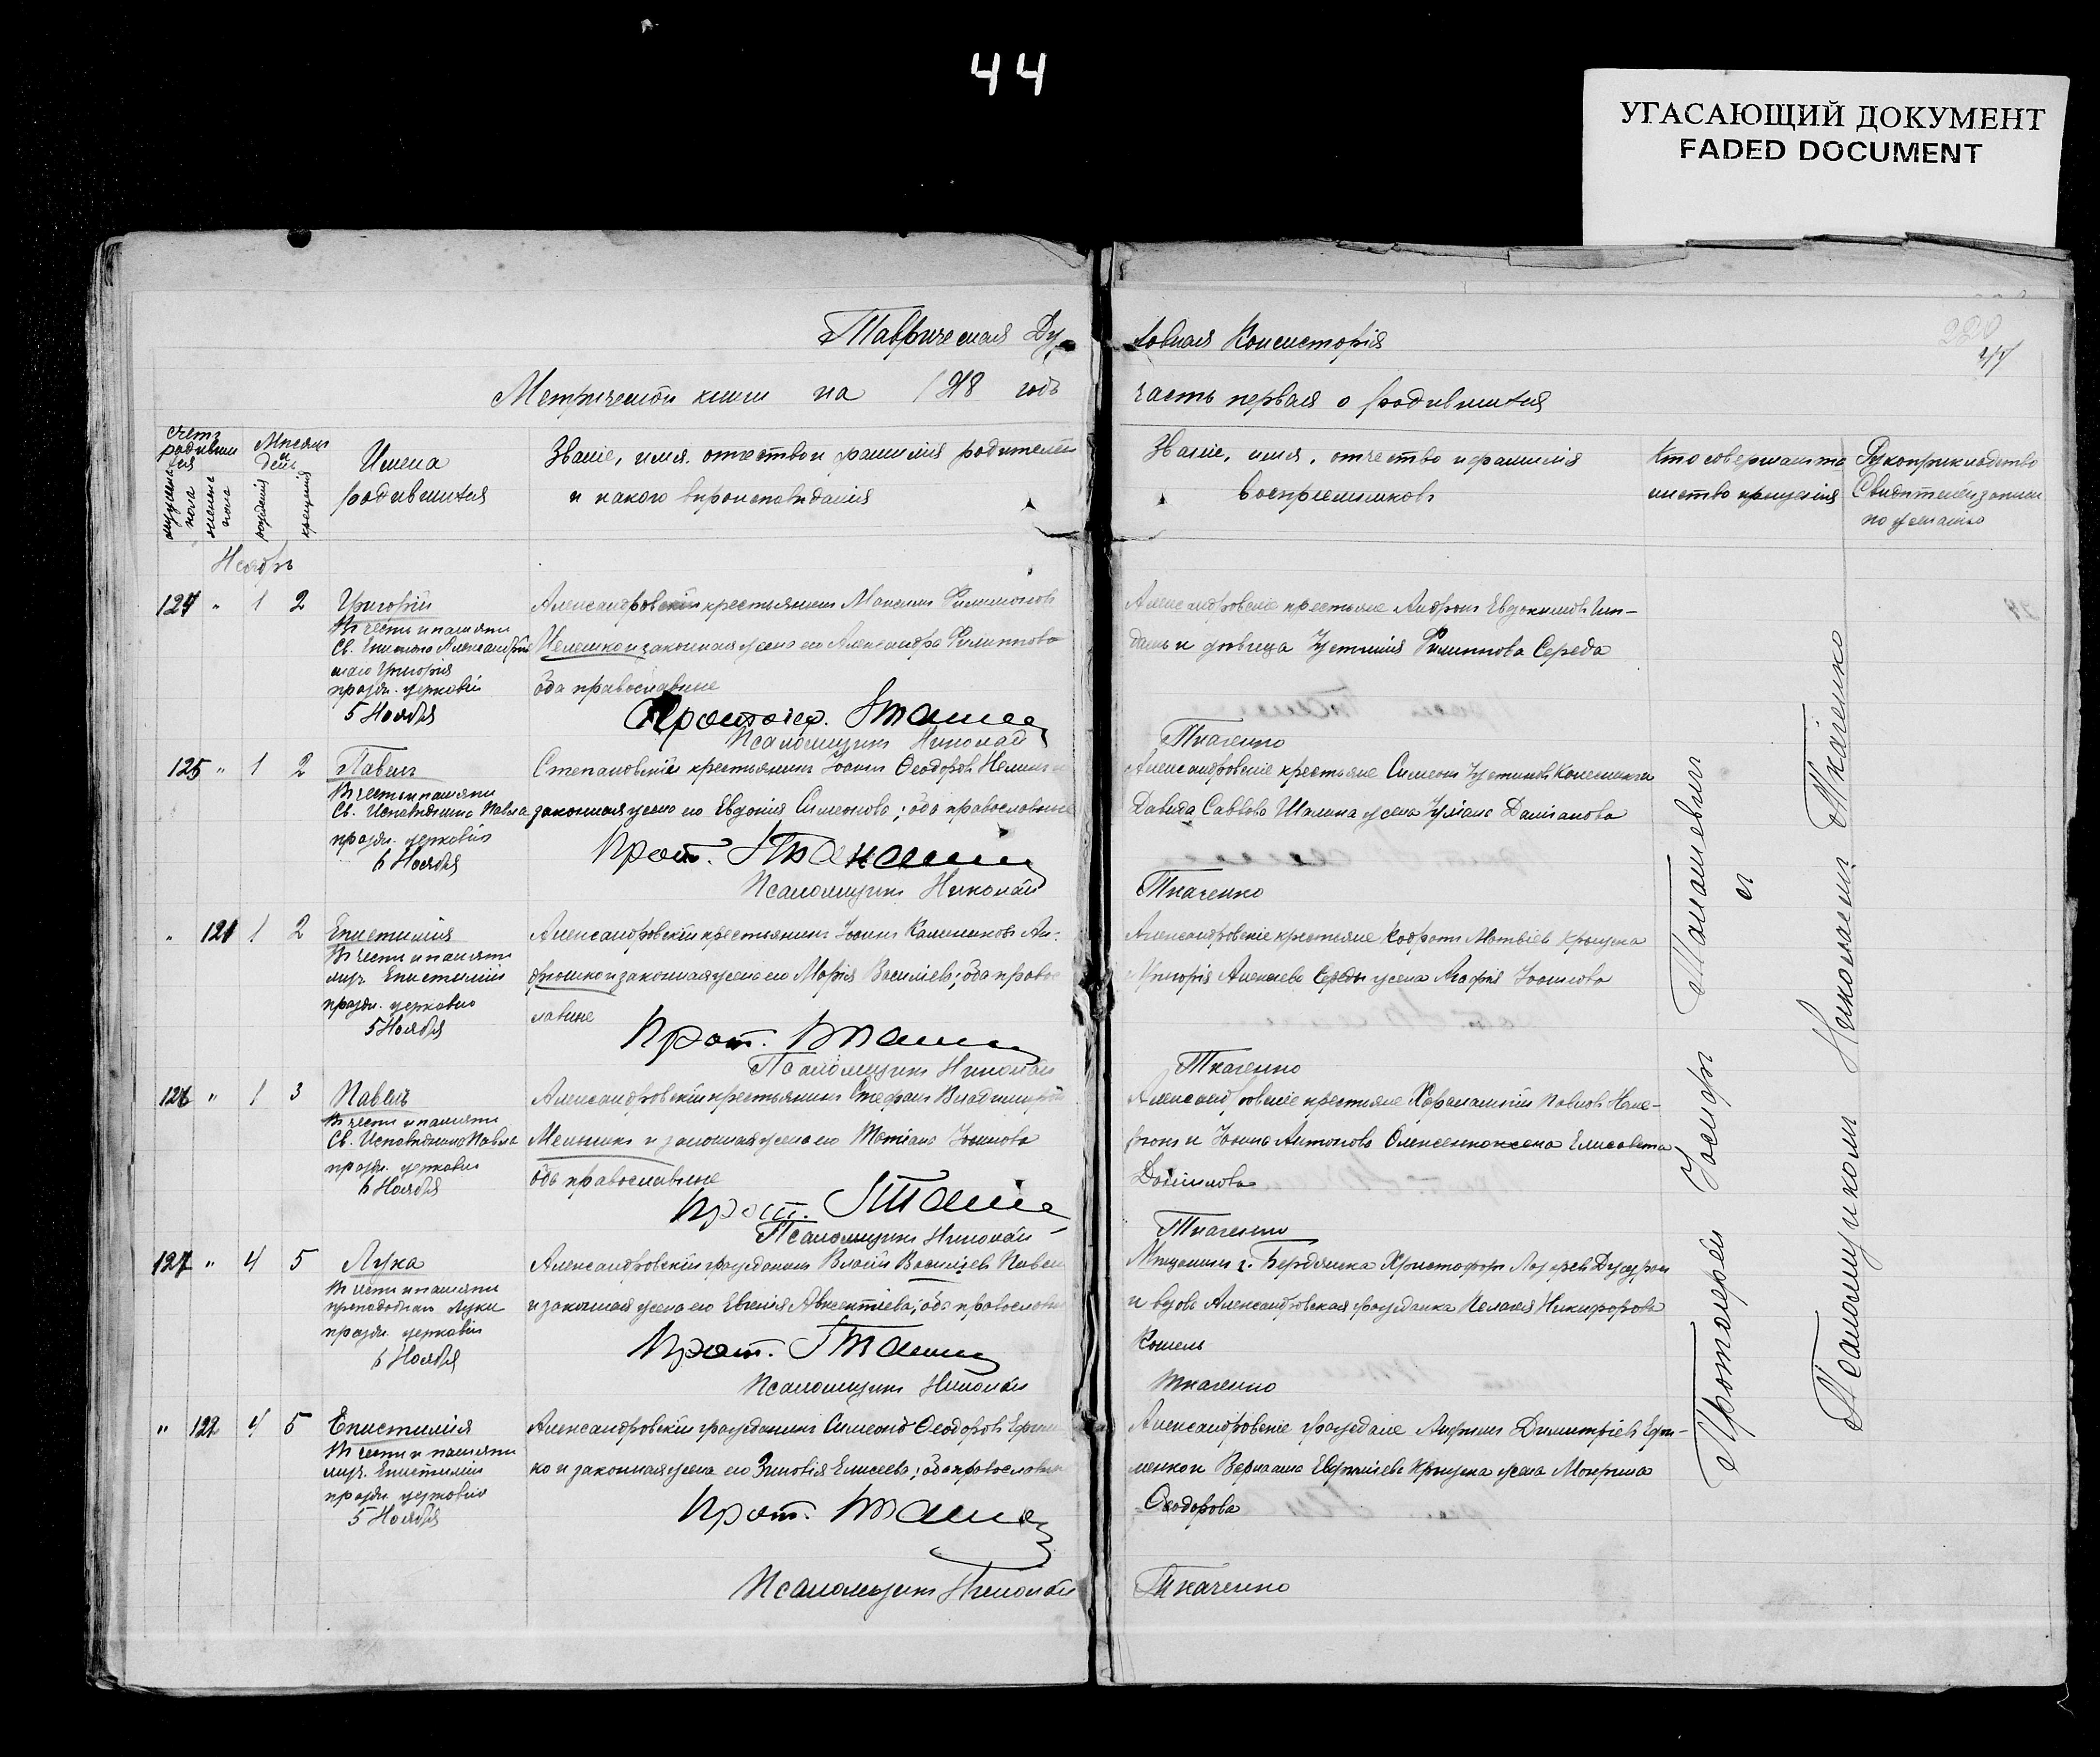 44
УГАСАЮЩИЙ ДОКУМЕНТ
FADED DOCUMENT
Таврическая Ду
ховная Консисторія
Метрической книги на 1918 годъ
часть первая о родившихся
счетъ родивши хся
мужеска пола
женска пола
Мѣсяцъ и день
рожденія
крещенія
Имена родившихся
Званіе, имя, отчество и фамилія родителей
и какого вѣроисповѣданія
Званіе, имя, отчество и фамилія
воспріемниковъ
Кто совершалъ та
инство крещенія
Рукоприкладство
Свидѣтелей записи
по желанію
Ноябрь
124 " 1 2 Григорій
Въ честь и память
Св. Епископа Александрій
скаго Григорія
праздн. церковію
5 Ноября
Александровскій крестьянинъ Максимъ Филимоновъ
Мелешко и законная жена его Александра Филиппова
оба православные
Протоіер.
Псаломщикъ Николай
Александровскіе крестьяне Андрей Евдокимовъ
и дѣвица Устинія Филиппова Середа
Ткаченко
125 " 1 2 Павелъ
Въ честь и память
Св. Исповѣдника Павла
праздн. церковію
6 Ноября
Степановскій крестьянинъ Іоаннъ Ѳеодоровъ
законная жена его Евдокія Симеонова; оба православные
Прот.
Псаломщикъ Николай
Александровскіе крестьяне Симеонъ Устиновъ
Давида Саввова Шалина жена Уліана Даміанова
Ткаченко
" 121 1 2 Епистимія
Въ честь и память
муч. Епистиміи
праздн. церковію
5 Ноября
Александровскій крестьянинъ Іоаннъ Калинниковъ Ан-
дрюшко и законная жена его Марія Васильева; оба правос
лавные
Прот.
Псаломщикъ Николай
Александровскіе крестьяне Кодратъ Матвіевъ Крыцка
Григорія Алексѣева Середы жена Агафія Іоаннова
Ткаченко
126 " 1 3 Павелъ
Въ честь и память
Св. Исповѣдника Павла
праздн. церковію
6 Ноября
Александровскій крестьянинъ Стефанъ Владиміровъ
Мельникъ и законная жена его Татіана Іоаннова
оба православные
Прот.
Псаломщикъ Николай
Александровскіе крестьяне Харалампій Павловъ
и Іоанна Антонова Олексенко жена Елисавета
Даніилова
Ткаченко
127 " 4 5 Лука
Въ честь и память
преподобнаго Луки
праздн. церковію
6 Ноября
Александровскій гражданинъ Власій Васильевъ
и законная жена его Евгенія Авксентіева; оба православны
Прот.
Псаломщикъ Николай
Мѣщанинъ г. Бердянска Христофоръ Лазаревъ
и вдова Александровская гражданка Пелагея Никифорова
Кошель
Ткаченко
" 122 4 5 Епистимія
Въ честь и память
муч. Епистиміи
праздн. церковію
5 Ноября
Александровскій гражданинъ Симеонъ Ѳеодоровъ
ко и законная жена его Зиновія Елисеева; оба православны
Прот.
Псаломщикъ Николай
Александровскіе граждане Андрей Димитріевъ Ефи-
менко и Варлаама Евфиміева Крыцка жена Макрина
Ѳеодорова
Ткаченко
Протоіерей Іосифъ
съ
Псаломщикомъ Николаемъ Ткаченко